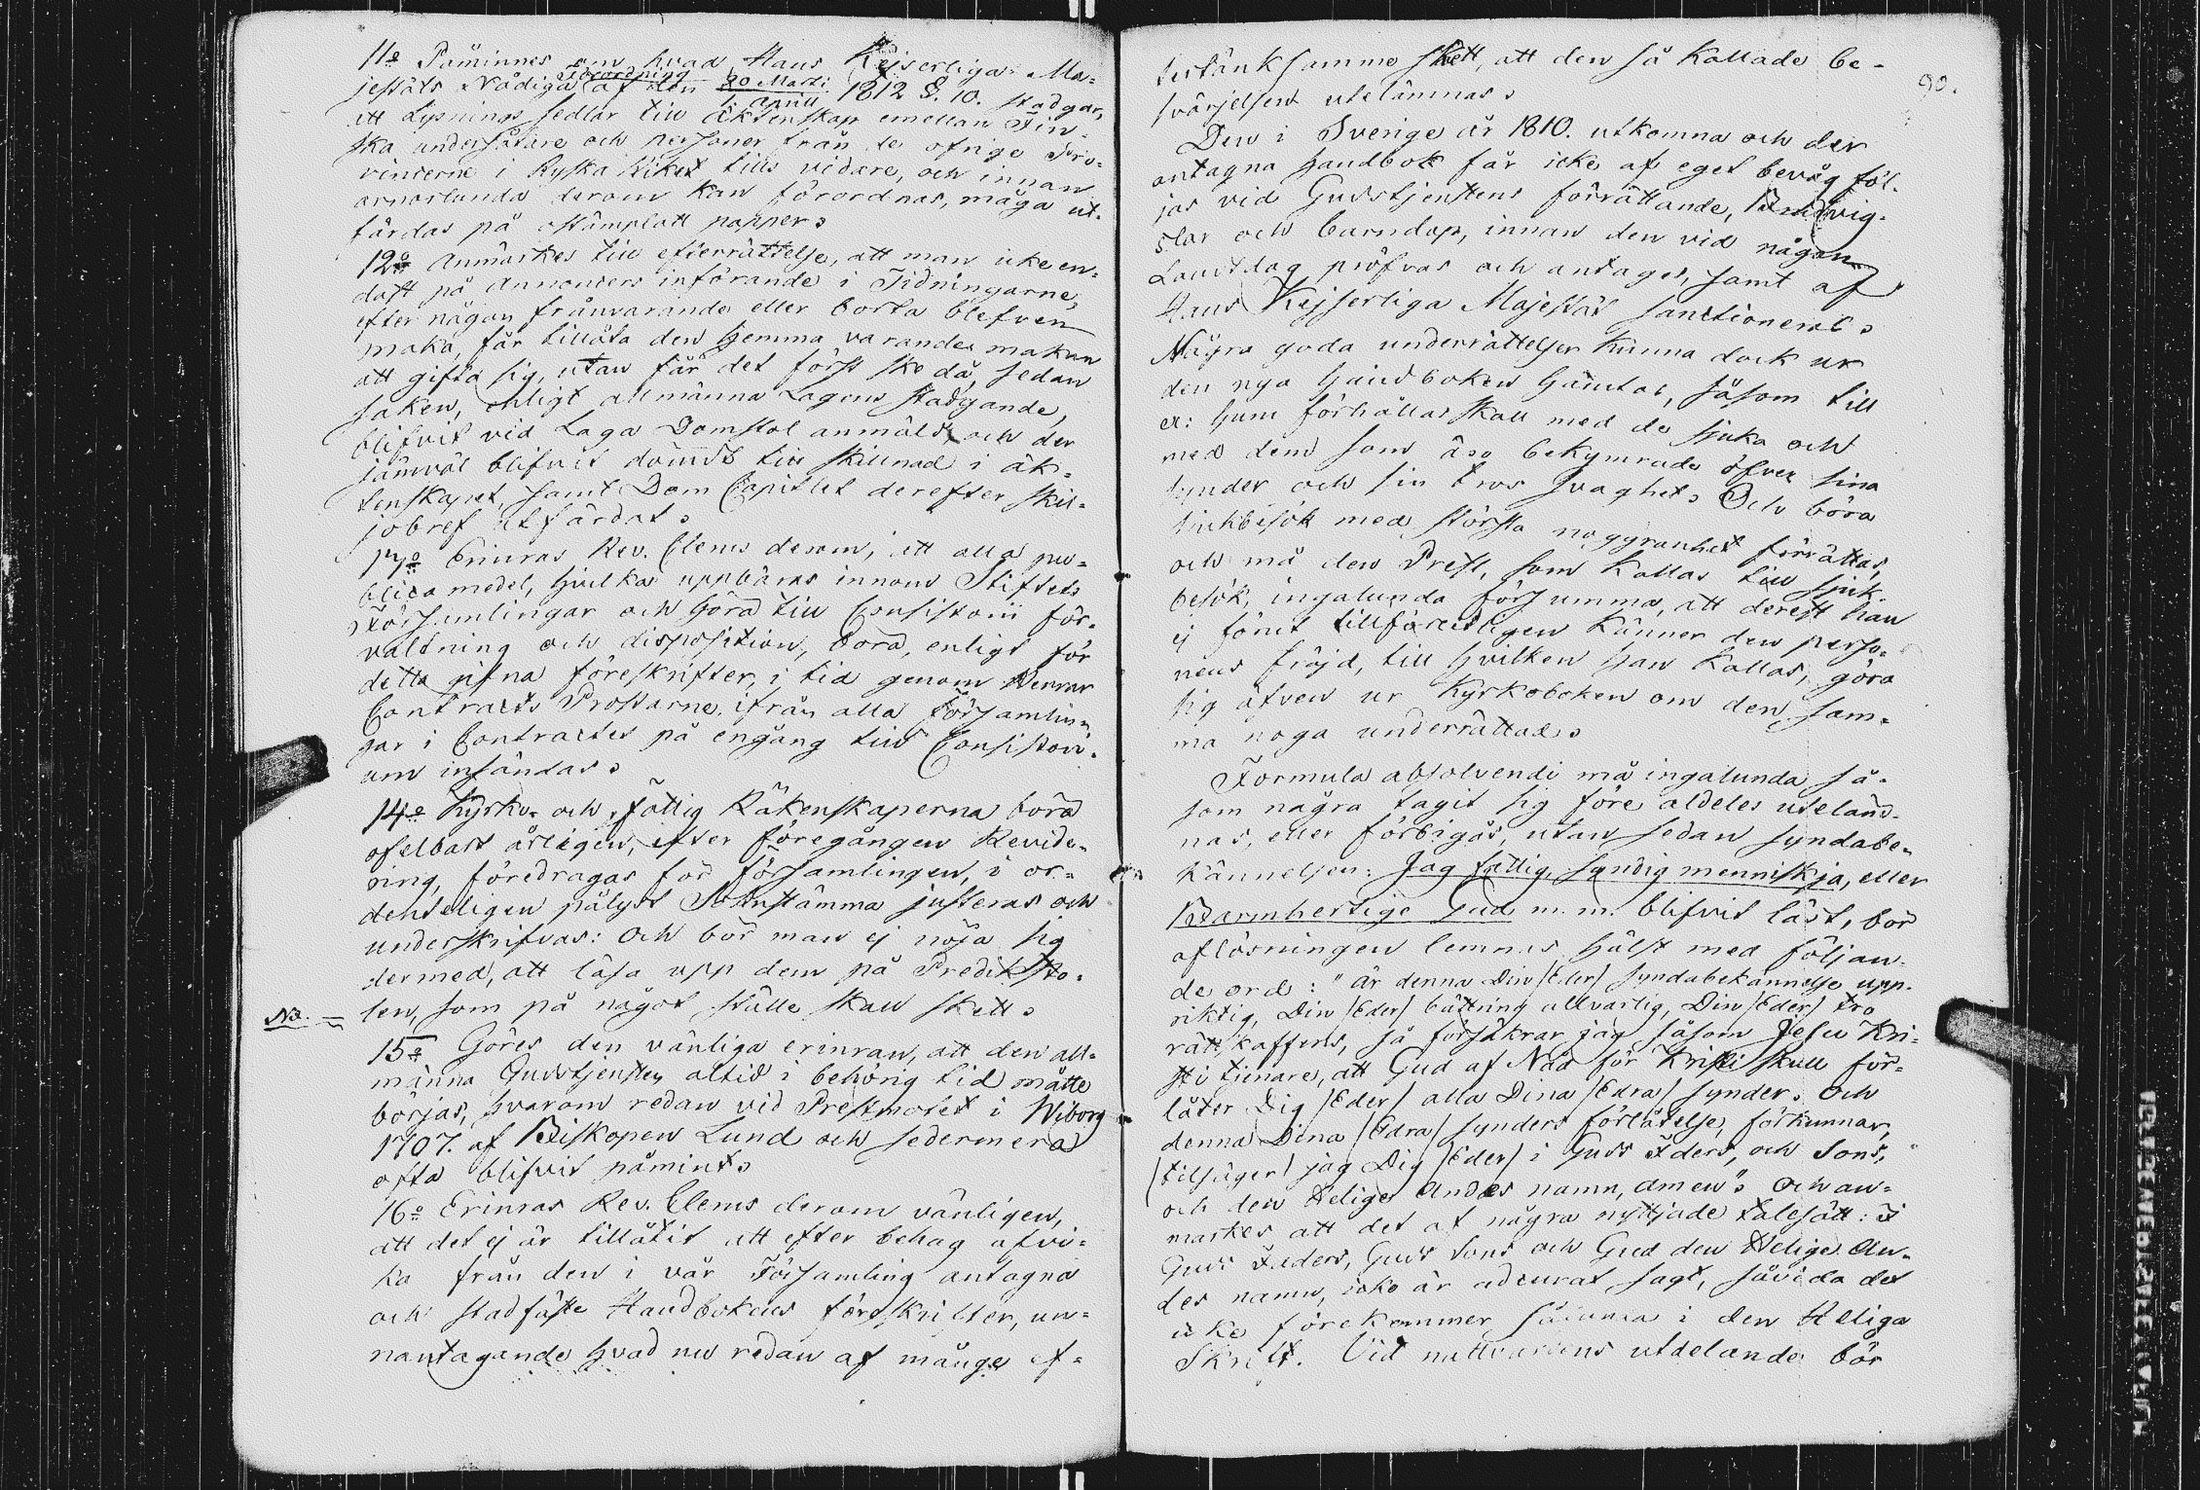 11o Påminnes om hvad Hans Kejserliga Ma-
jestäts Nådiga Förordning af den 20 Martii / 1 April 1812 §. 10. stadgar,
att Lysnings sedlar till äktenskap emellan Fin-
ska undersåtare och personer från de öfrige Pro-
vinserne i Ryska Riket tills vidare, och innan
annorlunda derom kan förordnas, måga ut-
färdas på ostämplatt papper.
12o Anmärkes till efterrättelse, att man icke en-
dast på Annonsers införande i Tidningarne,
efter någon frånvarande eller borta blefven
maka, får tillåta den hemma varande makan
att gifta sig, utan får det först ske då, sedan
saken, enligt allmänna Lagens stadgande,
blifvit vid Laga Domstol anmäld och der
jämväl blifvit dömdt till skillnad i äk-
tenskapet, samt Dom Capitlet derefter skil-
jobref utfärdat.
13o Erinras Rev. Clerus derom, att alla pu-
blica medel, hvilka uppbäras innom Stiftets
Församlingar och höra till Consistorii för-
valtning och disposition, böra, enligt för
detta gifna föreskrifter, i tid genom Herrar
Contracts Prostarne, ifrån alla Församlin-
gar i Contractet på engång till Consistori-
um insändas.
14o Kyrko- och fattig Räkenskaperna böra
ofelbart årligen, efter föregången Revide-
ring, föredragas för församlingen, i or-
denteligen pålyst Sockenstämma justeras och
underskrifvas: Och bör man ej nöja sig
dermed, att läsa upp dem på Prediksto-
len, som på något ställe skall skett.
NB.
15o Göres den vänliga erinran, att den all-
männa Gudstjensten altid i behörig tid måtte
börjas, hvarom redan vid Prestmötet i Wiborg
1707. af Biskopen Lund och sedermera
ofta blifvit påmint.
16o Erinras Rev. Clerus derom vänligen,
att det ej är tillåtit att efter behag afvi-
ka från den i vår Församling antagna
och stadfäste Handbokens föreskrifter, un-
nantagande hvad nu redan af månge ef-
90.
tertänksamme skett, att den så kallade be-
svärjelsen utelämnas.
Den i Sverige år 1810. utkomna och der
antagna handbok får icke af eget bevåg föl-
jas vid Gudstjenstens förrättande, Brudvig-
slar och barndop, innan den vid någon
Landtdag pröfvas och antages, samt af
Hans Kejserliga Majestät sanctioneras.
Några goda underrättelser kunna dock ur
den nya handboken hämtas, såsom till
ex: huru förhållas skall med de sjuka och
med dem som äro bekymrade öfver sina
synder och sin tros svaghet. Och böra
sjukbesök med största noggranhet förrättas,
och må den Prest, som kallas till sjuk-
besök, ingalunda försumma, att derest han
ej förut tillförlitligen känner den perso-
nens fräjd, till hvilken han kallas, göra
sig äfven ur Kyrkoboken om den sam-
ma noga underrättad.
Formula absolvendi må ingalunda så-
som några tagit sig före aldeles uteläm-
nas, eller förbigås, utan sedan syndabe-
kännelsen: Jag fattig syndig menniskja, eller
Barmhertige Gud m.m. blifvit läst, bör
aflösningen lemnas, hälst med följan-
de ord: "är denna Din /Eder/ syndabekännelse upp-
riktig, Din /Eder/ bättring allvarlig, Din /Eder/ tro
rättskaffens, så försäkrar jag såsom Jesu Kri-
sti tienare, att Gud af Nåd för Kristi skull för-
låter Dig /Eder/ alla Dina /Edra/ synder. Och
denna Dina /Edra/ synders förlåtelse, förkunnar,
/tilsäger/ jag Dig /Eder/ i Guds Faders, och Sons,
och den Helige Andes namn, amen". Och an-
märkes att det af några nyttjade talesätt: I
Guds Faders, Guds Sons och Gud den Helige An-
des namn, icke är adcurat sagt, såvida det
icke förekommer sålunda i den Heliga
Skrift. Vid nattvardens utdelande bör